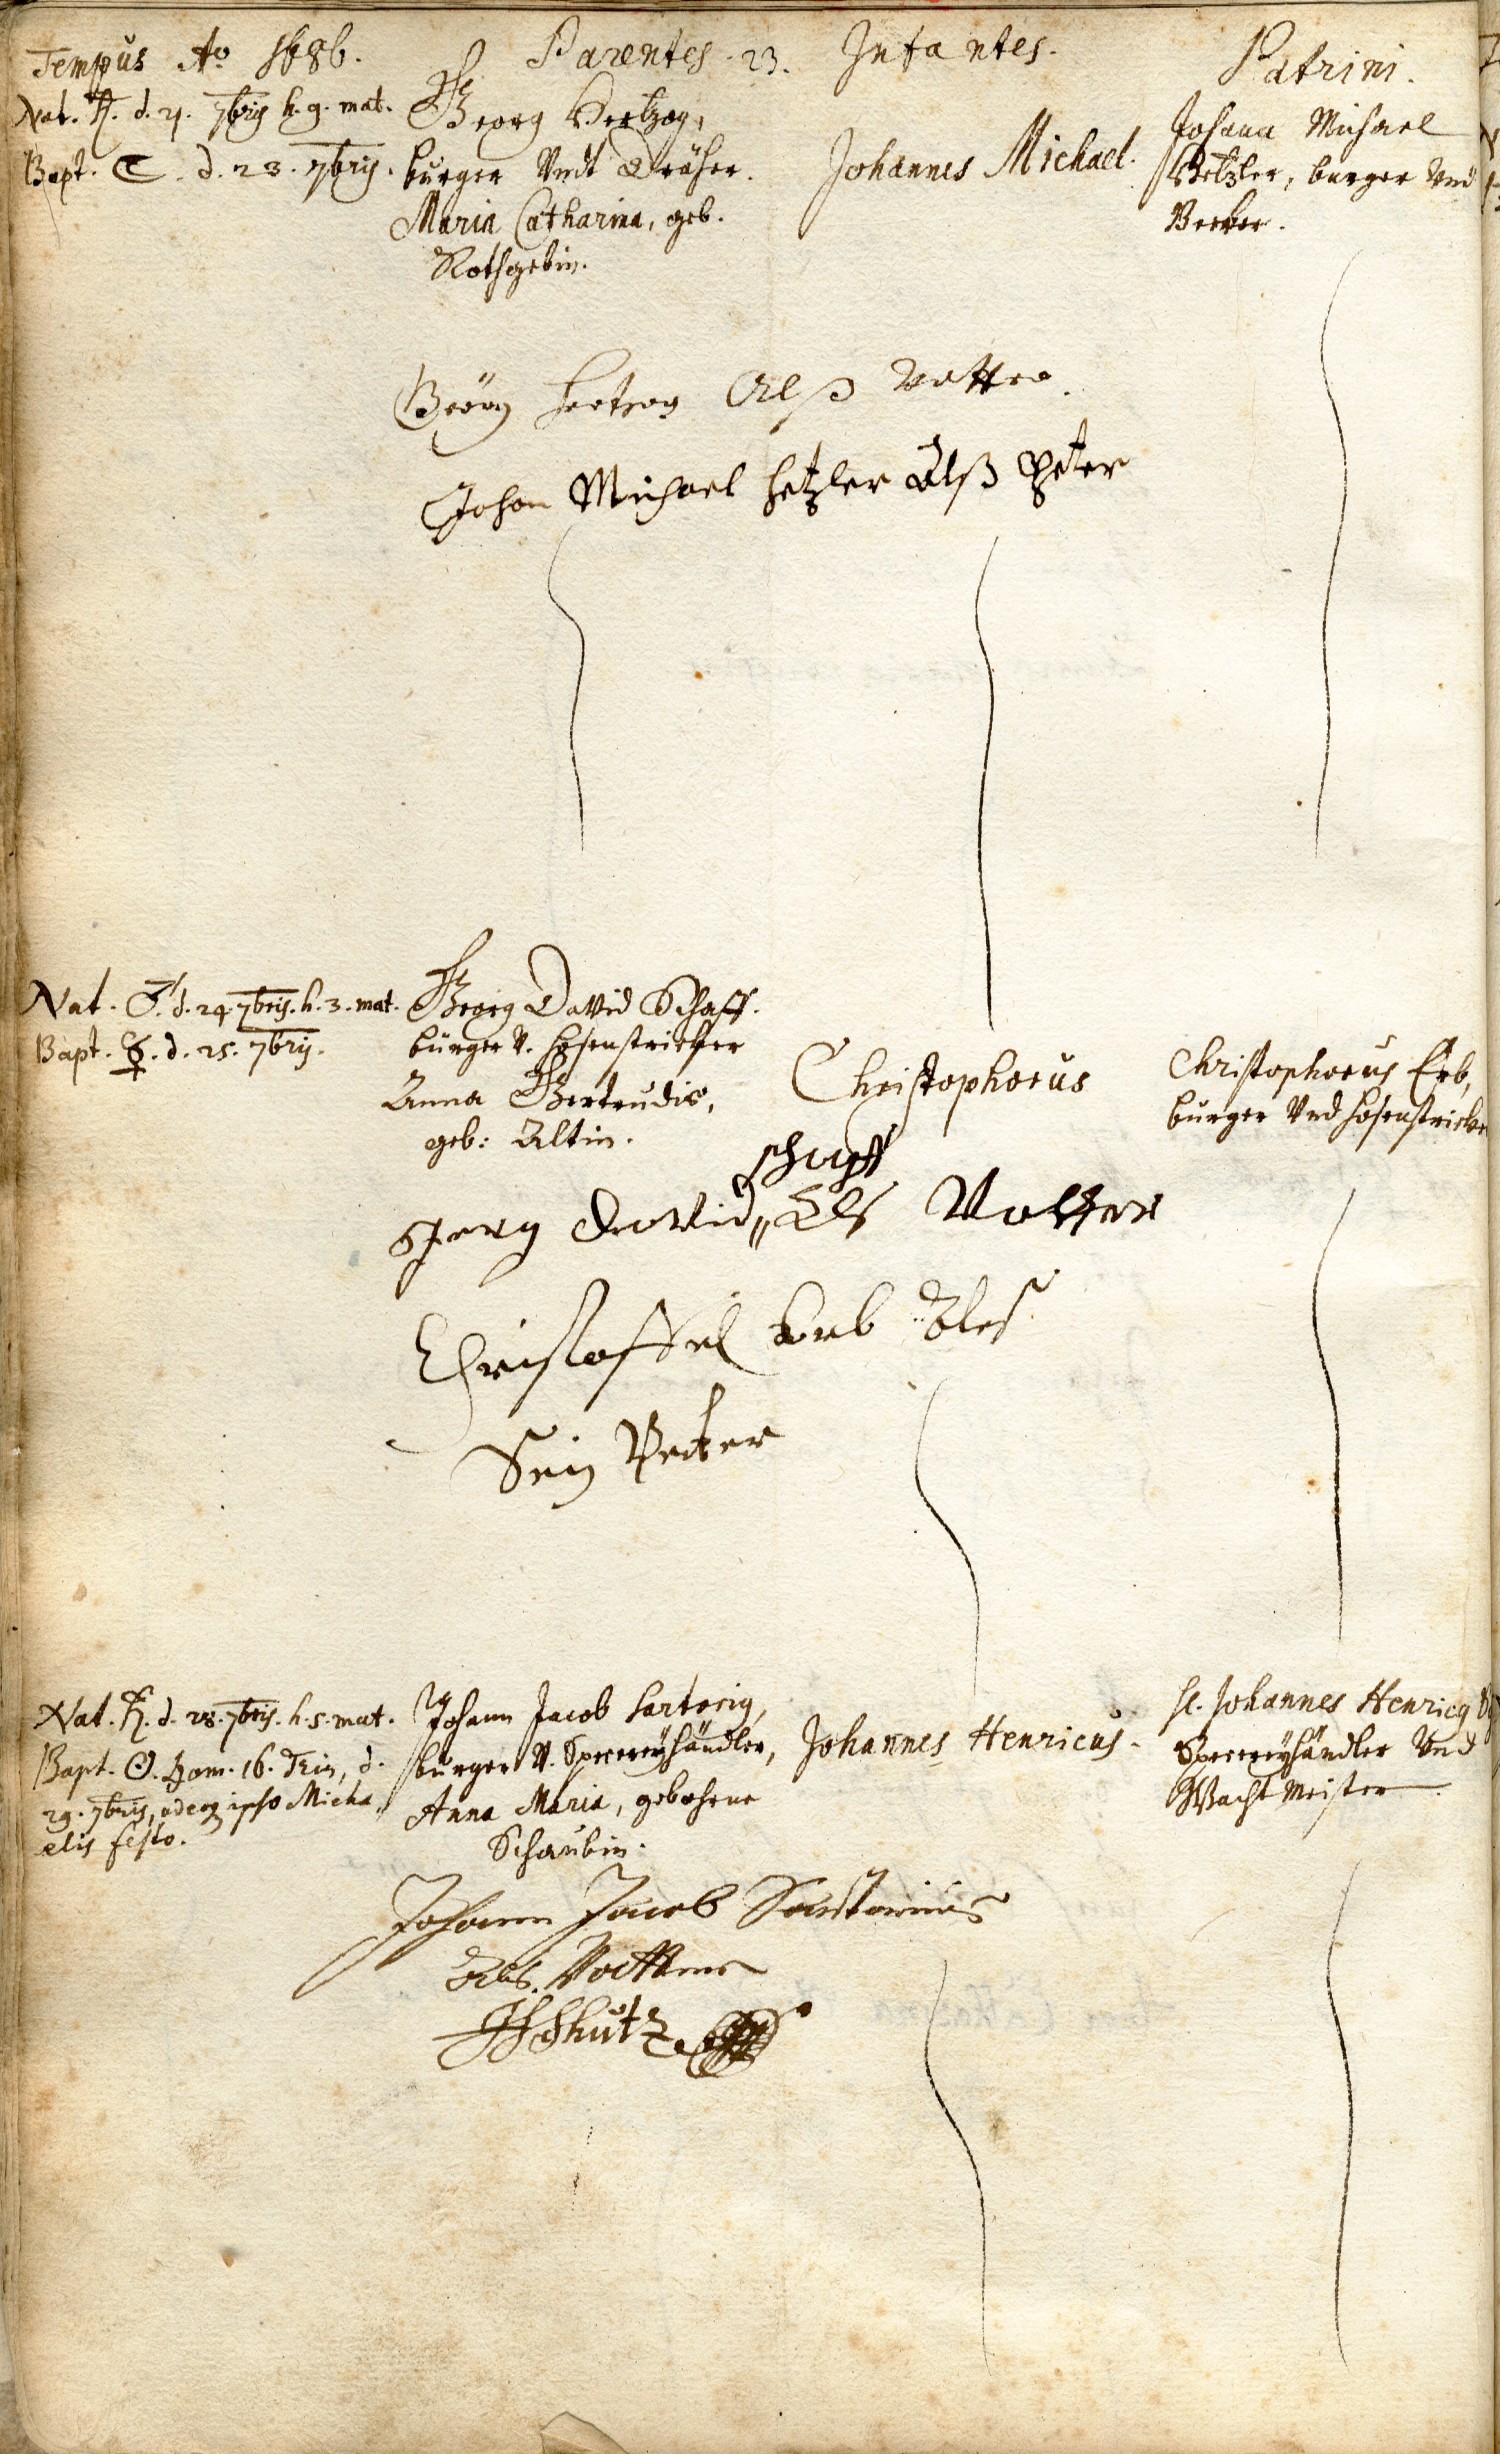 Tempus Ao 1686. Parentes. 23. Infantes. Patrini.
Nat. ♄. d. 21. 7bris h. 9. mat.
Bapt. ☾. d. 23. 7bris.
Georg Hertzog,
burger Undt Dräher.
Maria Catharina, geb.
Rothgebin.
Johannes Michael.
Johann Michael
Hetzler, burger Und
Becker.
Georg Hertzog Alß Vatter
Johan Michael Hetzler Alß Pfetter
Nat. ♂. d. 24. 7bris. h. 3. mat.
Bapt. ☿. d. 25. 7bris.
Georg David Schaff.
burger V. Hosenstricker
Anna Gertrudis,
geb: Altin.
Christophorus
Christophorus Erb,
burger Und Hosenstricker
schaff
Jerg David Als Vatter
Christoffel Erb Als
Sein Petter
Nat. ♄. d. 28. 7bris. h. 5. mat.
Bapt. ☉. Dom. 16. Trin, d.
29. 7bris, adeoq ipso Micha
elis festo.
Johann Jacob Sartorig,
burger V. Specereyhändler,
Anna Maria, gebohrne
Schaubin.
Johannes Henricus.
H. Johannes Henricq
Specereyhändler Und
Wacht Meister.
Johann Jacob Sartorius
Als. Vatter
JHShütz